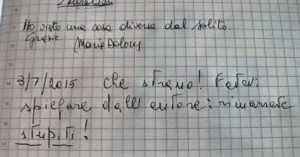 Ho visto una cosa diversa dal solito.
Grazie
3/7/2015 che strano! Fatevi
spiegare dall'autore: rimarrete
stupiti!